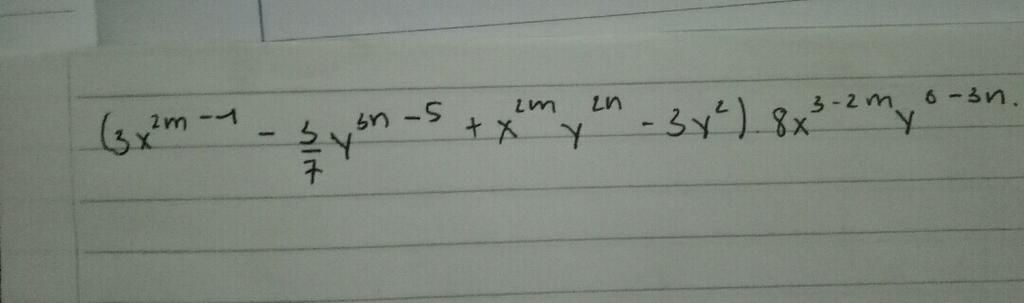 (3x^{2m-1} - \frac{3}{7}y^{3n-5} + x^{2m}y^{2n} - 3y^2).8x^{3-2m}y^{6-3n}.